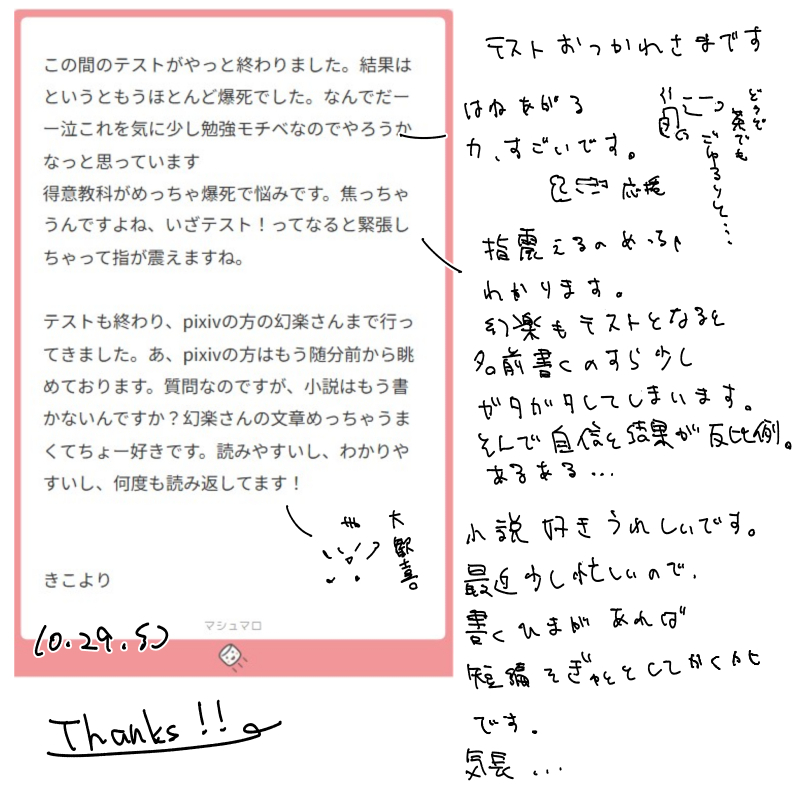 この間のテストがやっと終わりました。結果は
というともうほとんど爆死でした。なんでだー
ー泣これを気に少し勉強モチベなのでやろうか
なっと思っています
得意教科がめっちゃ爆死で悩みです。焦っちゃ
うんですよね、いざテスト！ってなると緊張し
ちゃって指が震えますね。
テストも終わり、pixivの方の幻楽さんまで行っ
てきました。あ、pixivの方はもう随分前から眺
めております。質問なのですが、小説はもう書
かないんですか？幻楽さんの文章めっちゃうま
くてちょー好きです。読みやすいし、わかりや
すいし、何度も読み返してます！
きこより
マシュマロ
大歓喜
Thanks!!
テストおつかれさまです
はねあがる
力、すごいです。
応援
どうで
茶でも
ごゆるりと…
指震えるのめっちゃ
わかります。
幻楽もテストとなると
名前書くのすら少し
ガタガタしてしまいます。
そんで自信と結果が反比例。
あるある…
小説好きうれしいです。
最近少し忙しいので、
書くひまがあれば
短編
です。
気長…